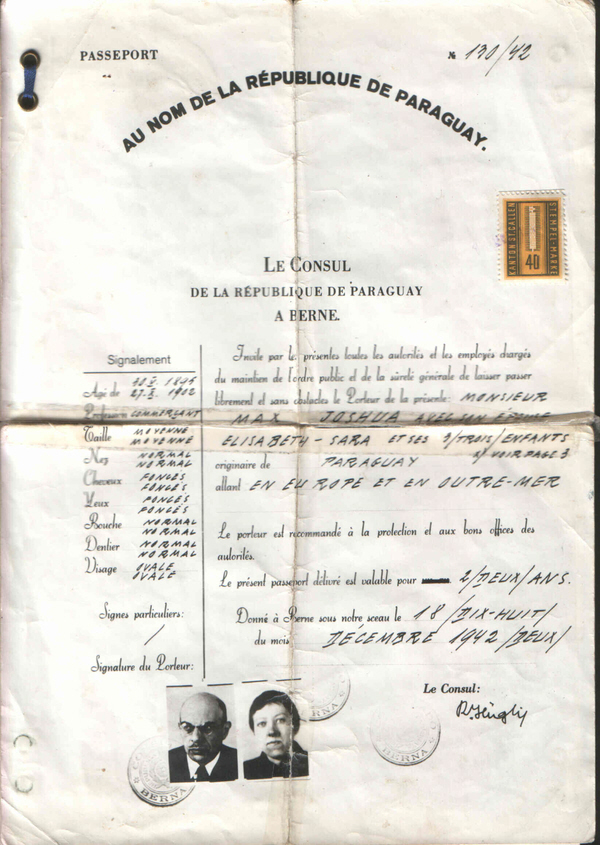 PASSEPORT
№ 130/42
AU NOM DE LA RÉPUBLIQUE DE PARAGUAY.
KANTON ST. GALLEN
STEMPEL-MARKE
40
LE CONSUL
DE LA RÉPUBLIQUE DE PARAGUAY
A BERNE.
Signalement
Agé de 1895
1902
Profession COMMERÇANT
Taille MOYENNE
MOYENNE
Nez NORMAL
NORMAL
Cheveux FONCÉS
FONCÉS
Yeux FONCÉS
FONCÉS
Bouche NORMAL
NORMAL
Dentier NORMAL
NORMAL
Visage OVALE
OVALE
Signes particuliers:
/
Signature du Porteur:
Invite par les présentes toutes les autorités et les employés chargés
du maintien de l'ordre public et de la sûreté générale de laisser passer
librement et sans obstacles le Porteur de la présente: MONSIEUR
MAX JOSHUA AVEC SON ÉPOUSE
ELISABETH - SARA ET SES 3/TROIS/ENFANTS
originaire de PARAGUAY x/ VOIR PAGE 3
allant EN EUROPE ET EN OUTRE-MER
Le porteur est recommandé à la protection et aux bons offices des
autorités.
Le présent passeport délivré est valable pour 2/DEUX/ANS.
Donné à Berne sous notre sceau le 18/DIX-HUIT/
du mois DÉCEMBRE 1942/DEUX/
Le Consul:
BERNA
BERNA